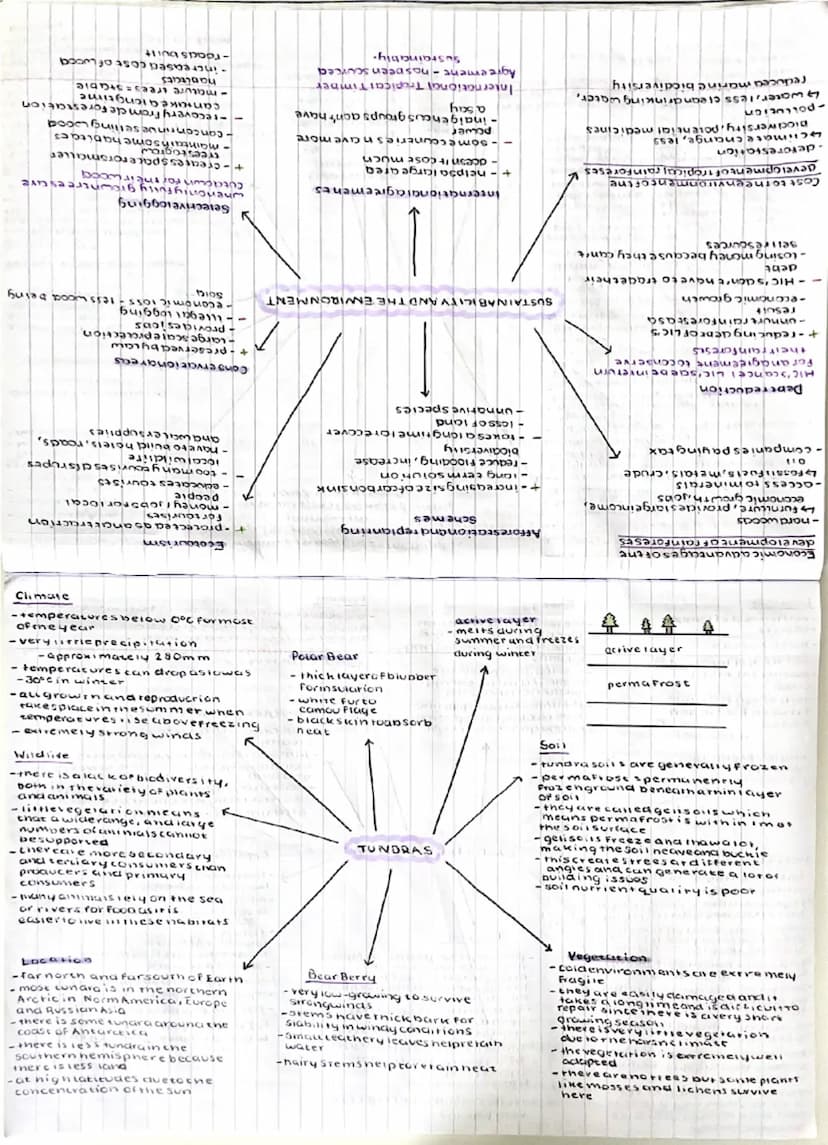 Economic advantages of the
development of rainforests
- hardwoods
↳ furniture, provides large income,
economic growth, jobs
- access to minerals
↳ fossil fuels, metals, crude
oil
- companies paying tax
Afforestation and replanting
Schemes
+ - increasing size of carbon sink
- long term solution
- reduce flooding, increase
biodiversity
- - takes a long time to recover
- loss of land
- unnative species
Ecotourism
+ - protected as an attraction
for tourises
- money / jobs for local
people
- educates tourists
- - too many tourises disrupes
local wildlife
- have to build hotels, roads,
and water supplies
Debt reduction
HIC's cancel LIC's debt in return
for an agreement to conserve
their rainforests
+ - reducing debt of LIC's
- unhurt rainforest as a
result
- economic growth
- - HIC's don't have to trade their
debt
- losing money because they can't
sell resources
Conservation areas
+ - preserved by law
- large scale protection
- provides jobs
- - illegal logging
- economic loss - less wood being
sold
SUSTAINABILITY AND THE ENVIRONMENT
Cost to the environment of the
development of tropical rainforests
- deforestation
↳ climate change, less
biodiversity, potential medicines
- pollution
↳ water, less clean drinking water,
reduced marine biodiversity
International agreements
+ - helps a large area
- doesn't cost much
- - some countries have more
power
- indigenous groups don't have
a say
International Tropical Timber
Agreement - has been sourced
sustainably.
Selective logging
when only fully grown trees are
cut down for their wood
+ - creates space for smaller
trees to grow
- maintains some habitats
- can continue selling wood
- - recovery from deforestation
can take a long time
- mature trees = stable
habitats
- increased cost of wood
- roads built
Climate
- temperatures below 0°c for most
of the year
- very little precipitation
- approximately 250mm
- temperatures can drop as low as
-30°c in winter
- all growth and reproduction
takes place in the summer when
temperatures rise above freezing
- extremely strong winds
Polar Bear
- thick layer of blubber
for insulation
- white fur to
camouflage
- black skin to absorb
heat
active layer
- melts during
summer and freezes
during winter
active layer
permafrost
Wildlife
- there is a lack of biodiversity,
both in the variety of plants
and animals
- little vegetation means
that a wide range, and large
numbers of animals cannot
be supported
- there are more secondary
and tertiary consumers than
producers and primary
consumers
- many animals rely on the sea
or rivers for food as it is
easier to live in these habitats
TUNDRAS
Soil
- tundra soils are generally frozen
- permafrost = permanently
frozen ground beneath a thin layer
of soil
- they are called gelisoils which
means permafrost is within 1m of
the soil surface
- gelisoils freeze and thaw a lot,
making the soil heave and buckle
- this creates trees at different
angles and can generate a lot of
building issues
- soil nutrient quality is poor
Location
- far north and far south of Earth
- most tundra is in the northern
Arctic in North America, Europe
and Russian Asia
- there is some tundra around the
coast of Antarctica
- there is less tundra in the
southern hemisphere because
there is less land
- at high latitudes due to the
concentration of the sun
Bear Berry
- very low-growing to survive
strong winds
- stems have thick bark for
stability in windy conditions
- small leathery leaves help retain
water
- hairy stems help to retain heat
Vegetation
- cold environments are extremely
fragile
- they are easily damaged and it
takes a long time and is difficult to
repair since there is a very short
growing season
- there is very little vegetation
due to the harsh climate
- the vegetation is extremely well
adapted
- there are no trees but some plants
like mosses and lichens survive
here